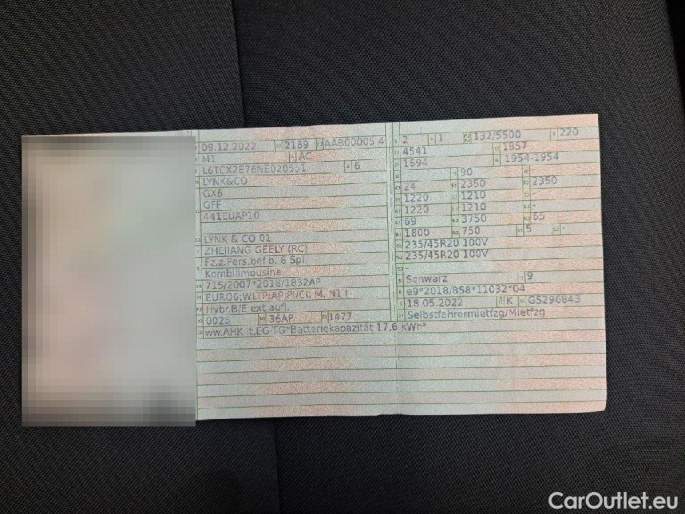 09.12.2022 2189 AAB00005 4
M1 AC
L6TCX2E76NE020551 6
LYNK&CO
GX6
GFF
441EUAP10
LYNK & CO 01
ZHEJIANG GEELY (RC)
Fz.z.Pers.bef.b. 8 Spl.
Kombilimousine
715/2007*2018/1832AP
EURO6;WLTP;AP;PI/CI, M, N1 I
Hybr.B/E ext.aufl.
0025 36AP 1477
2 1 132/5500 220
4541 1857
1694 1954-1954
90
24 2350 2350
1220 1210
1220 1210 -
69 3750 65
1800 750 5 -
235/45R20 100V
235/45R20 100V
-
Schwarz 9
e9*2018/858*11032*04
18.05.2022 K GS296843
Selbstfahrermietfzg/Mietfzg
ww.AHK lt.EG-TG*Batteriekapazität 17,6 kWh*
CarOutlet.eu